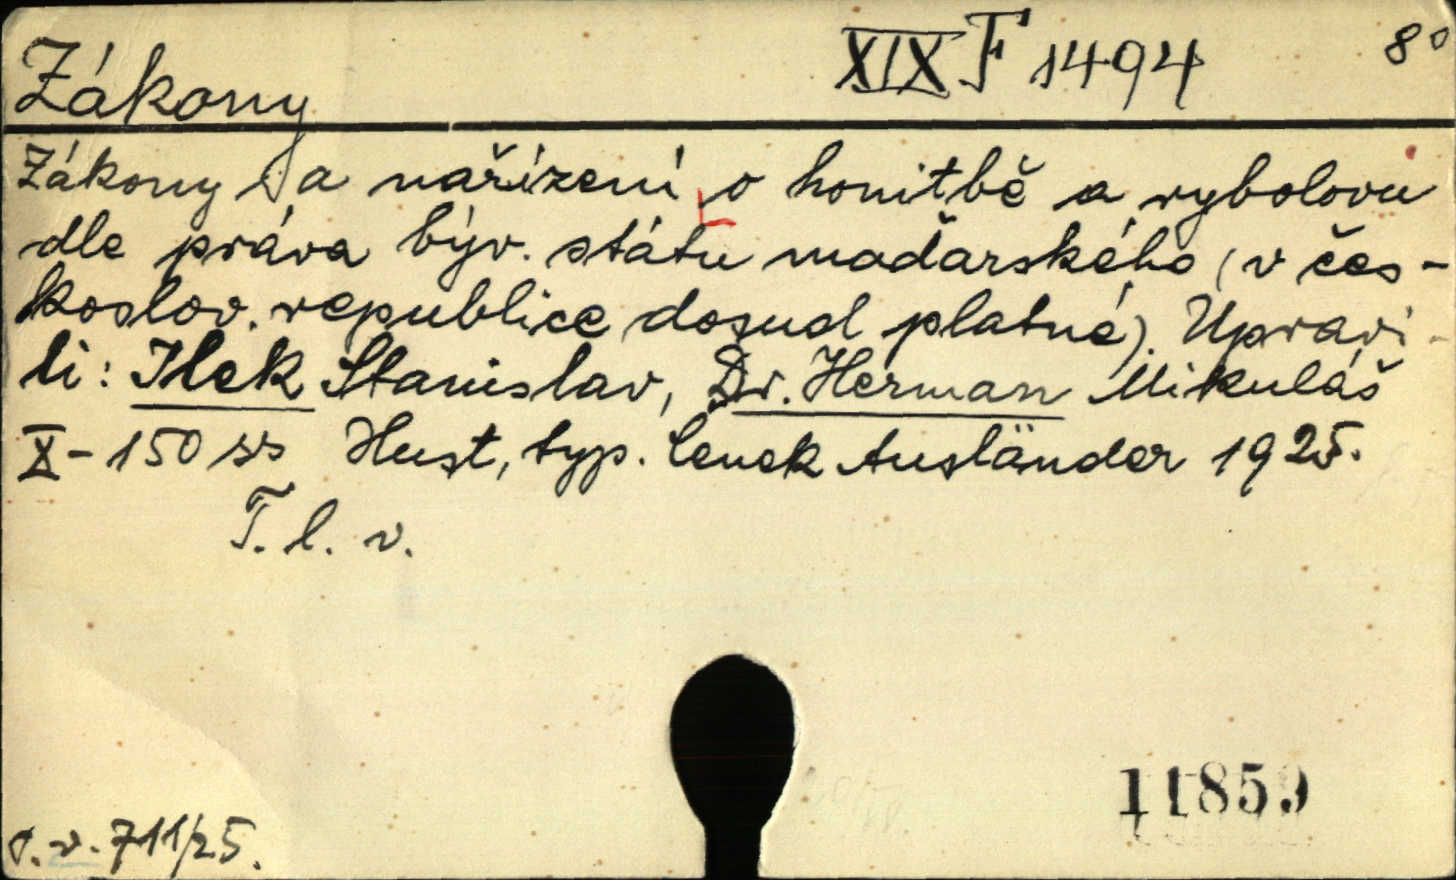 Zákony XIX F 1494 8°
Zákony a nařízení o honitbě a rybolovu
dle práva býv. státu maďarského (v čes-
koslov. republice dosud platné). Upravi-
li: Ilek Stanislav, Dr. Herman Mikuláš
X-150 ss Hust, typ. Čenek Ausländer 1925.
T. l. v.
11859
p. v. 711/25.